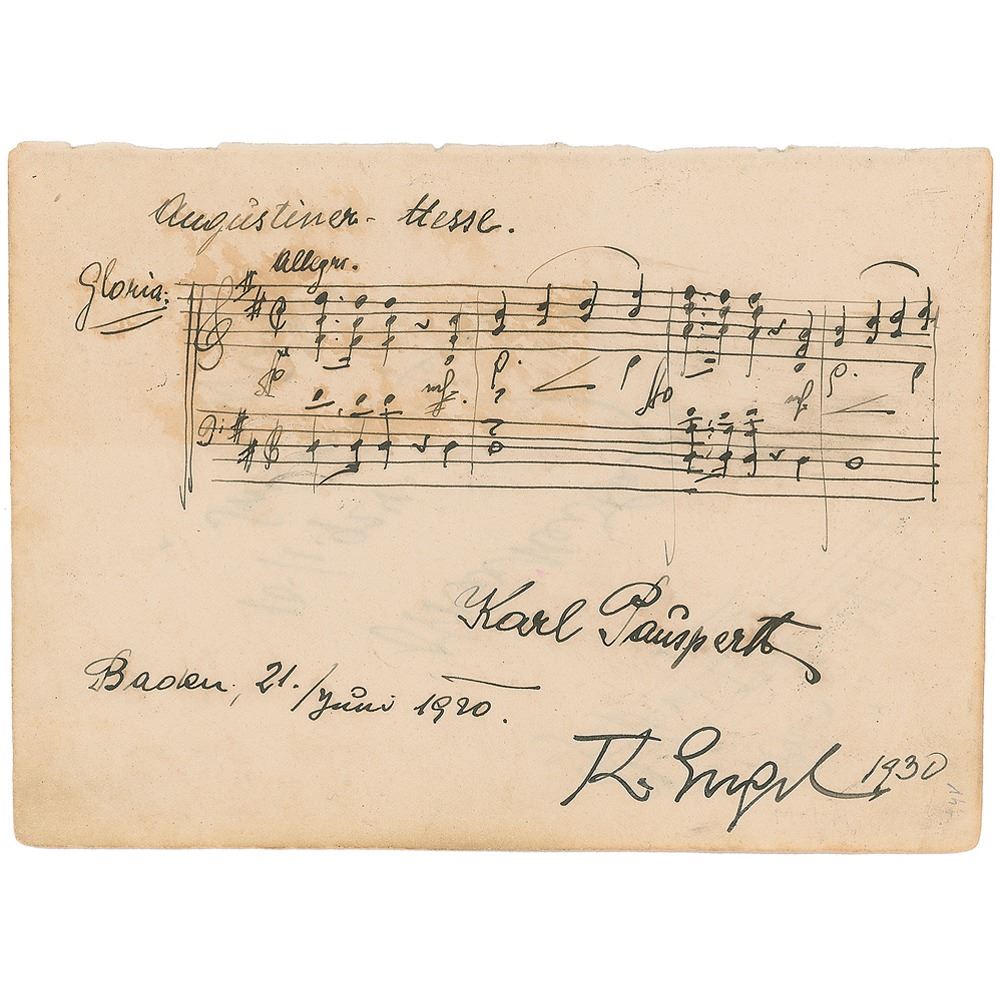 Augustiner-Messe.
Gloria: Allegro.
Karl Pauspertl
Baden, 21. Juni 1920.
R. Engel 1930